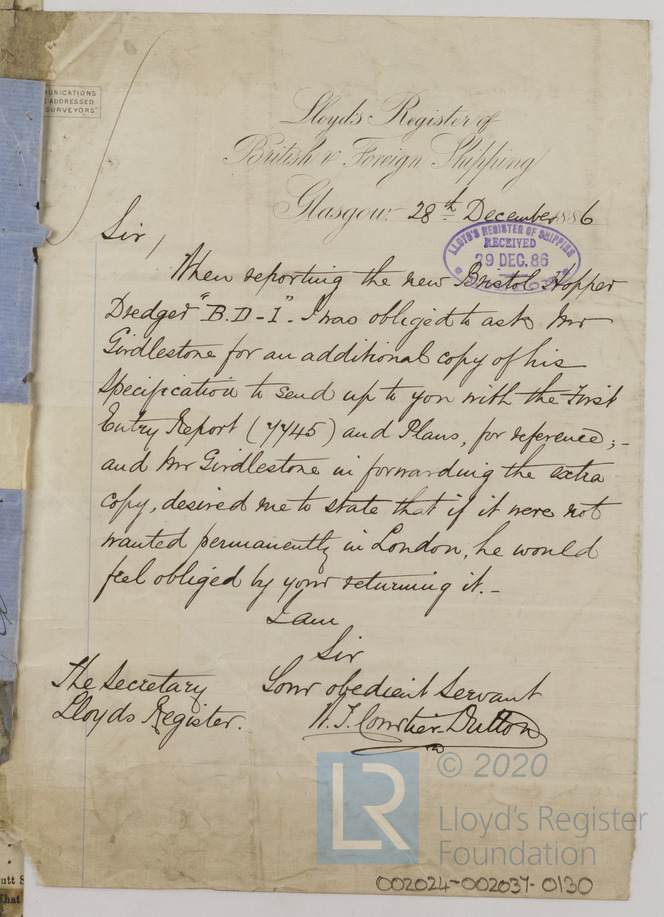 UNICATIONS
ADDRESSED
SURVEYORS"
Lloyd's Register of
British & Foreign Shipping
Glasgow 28th December 1886
LLOYD'S REGISTER OF SHIPPING
RECEIVED
29 DEC. 86
Sir,
When reporting the new Bristol Hopper
Dredger "B.D-1". I was obliged to ask Mr
Girdlestone for an additional copy of his
specification to send up to you with the First
Entry Report (7745) and Plans, for reference;-
and Mr Girdlestone in forwarding the extra
copy, desired me to state that if it were not
wanted permanently in London, he would
feel obliged by your returning it.-
I am
Sir
Your obedient Servant
The Secretary
Lloyds Register.
W. J. Courtier-Dutton
© 2020
LR
Lloyd's Register
Foundation
002024-002037-0130
utt S
That